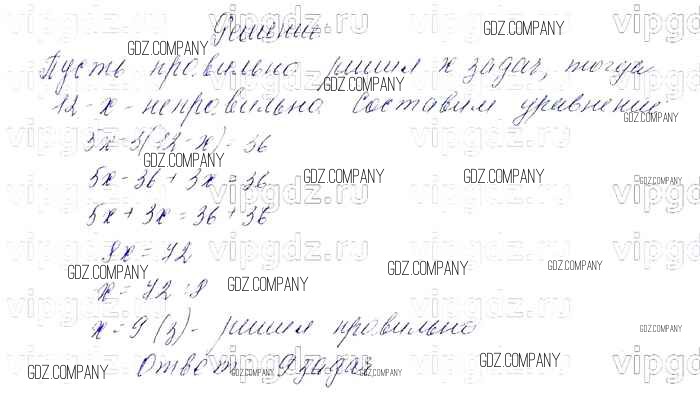 Решение:
Пусть правильно решил x задач, тогда
12-x - неправильно. Составим уравнение
5x-3(12-x)=36
5x-36+3x=36
5x+3x=36+36
8x=72
x=72:8
x=9 (з)- решил правильно
Ответ: 9 задач
vipgdz.ru
GDZ.COMPANY